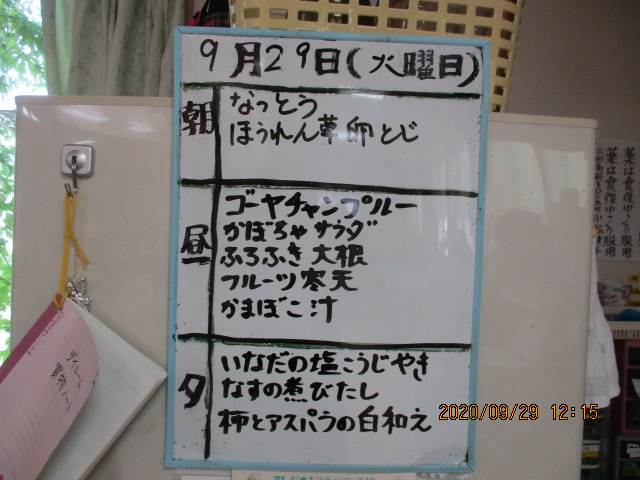 9月29日(火曜日)
朝
なっとう
ほうれん草卵とじ
昼
ゴーヤチャンプルー
かぼちゃサラダ
ふろふき大根
フルーツ寒天
かまぼこ汁
夕
いなだの塩こうじやき
なすの煮びたし
柿とアスパラの白和え
2020/09/29 12:15
薬は食後ゆっくり服用